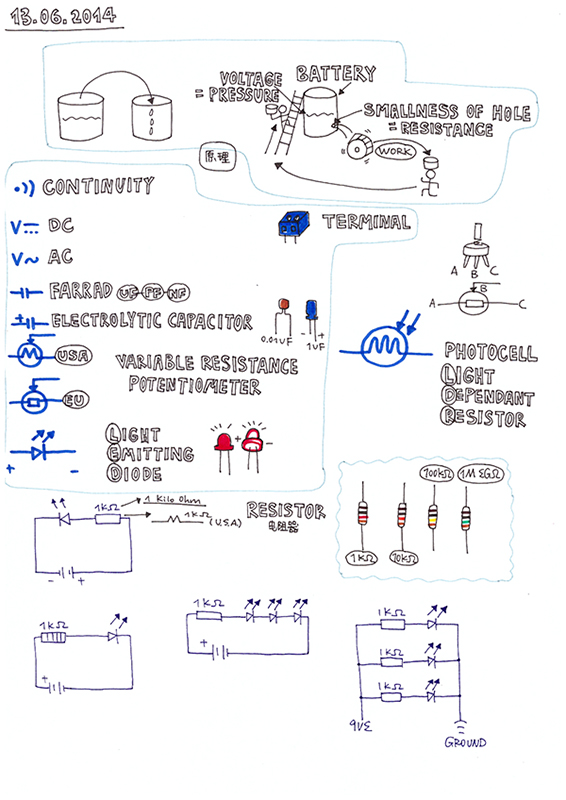 13.06.2014
VOLTAGE
= PRESSURE
BATTERY
SMALLNESS OF HOLE
= RESISTANCE
WORK
原理
CONTINUITY
V DC
V~ AC
TERMINAL
FARRAD UF PF NF
± ELECTROLYTIC CAPACITOR
0.01UF
- +
1UF
USA
VARIABLE RESISTANCE
POTENTIOMETER
EU
A B C
B
A C
PHOTOCELL
LIGHT
DEPENDANT
RESISTOR
LIGHT
EMITTING
DIODE
+ -
+ -
1KΩ
1 Kilo Ohm
1KΩ
(U.S.A)
RESISTOR
电阻器
- +
100KΩ
1MEGΩ
1KΩ
10KΩ
1KΩ
+
1KΩ
+
1KΩ
1KΩ
1KΩ
9VE
GROUND